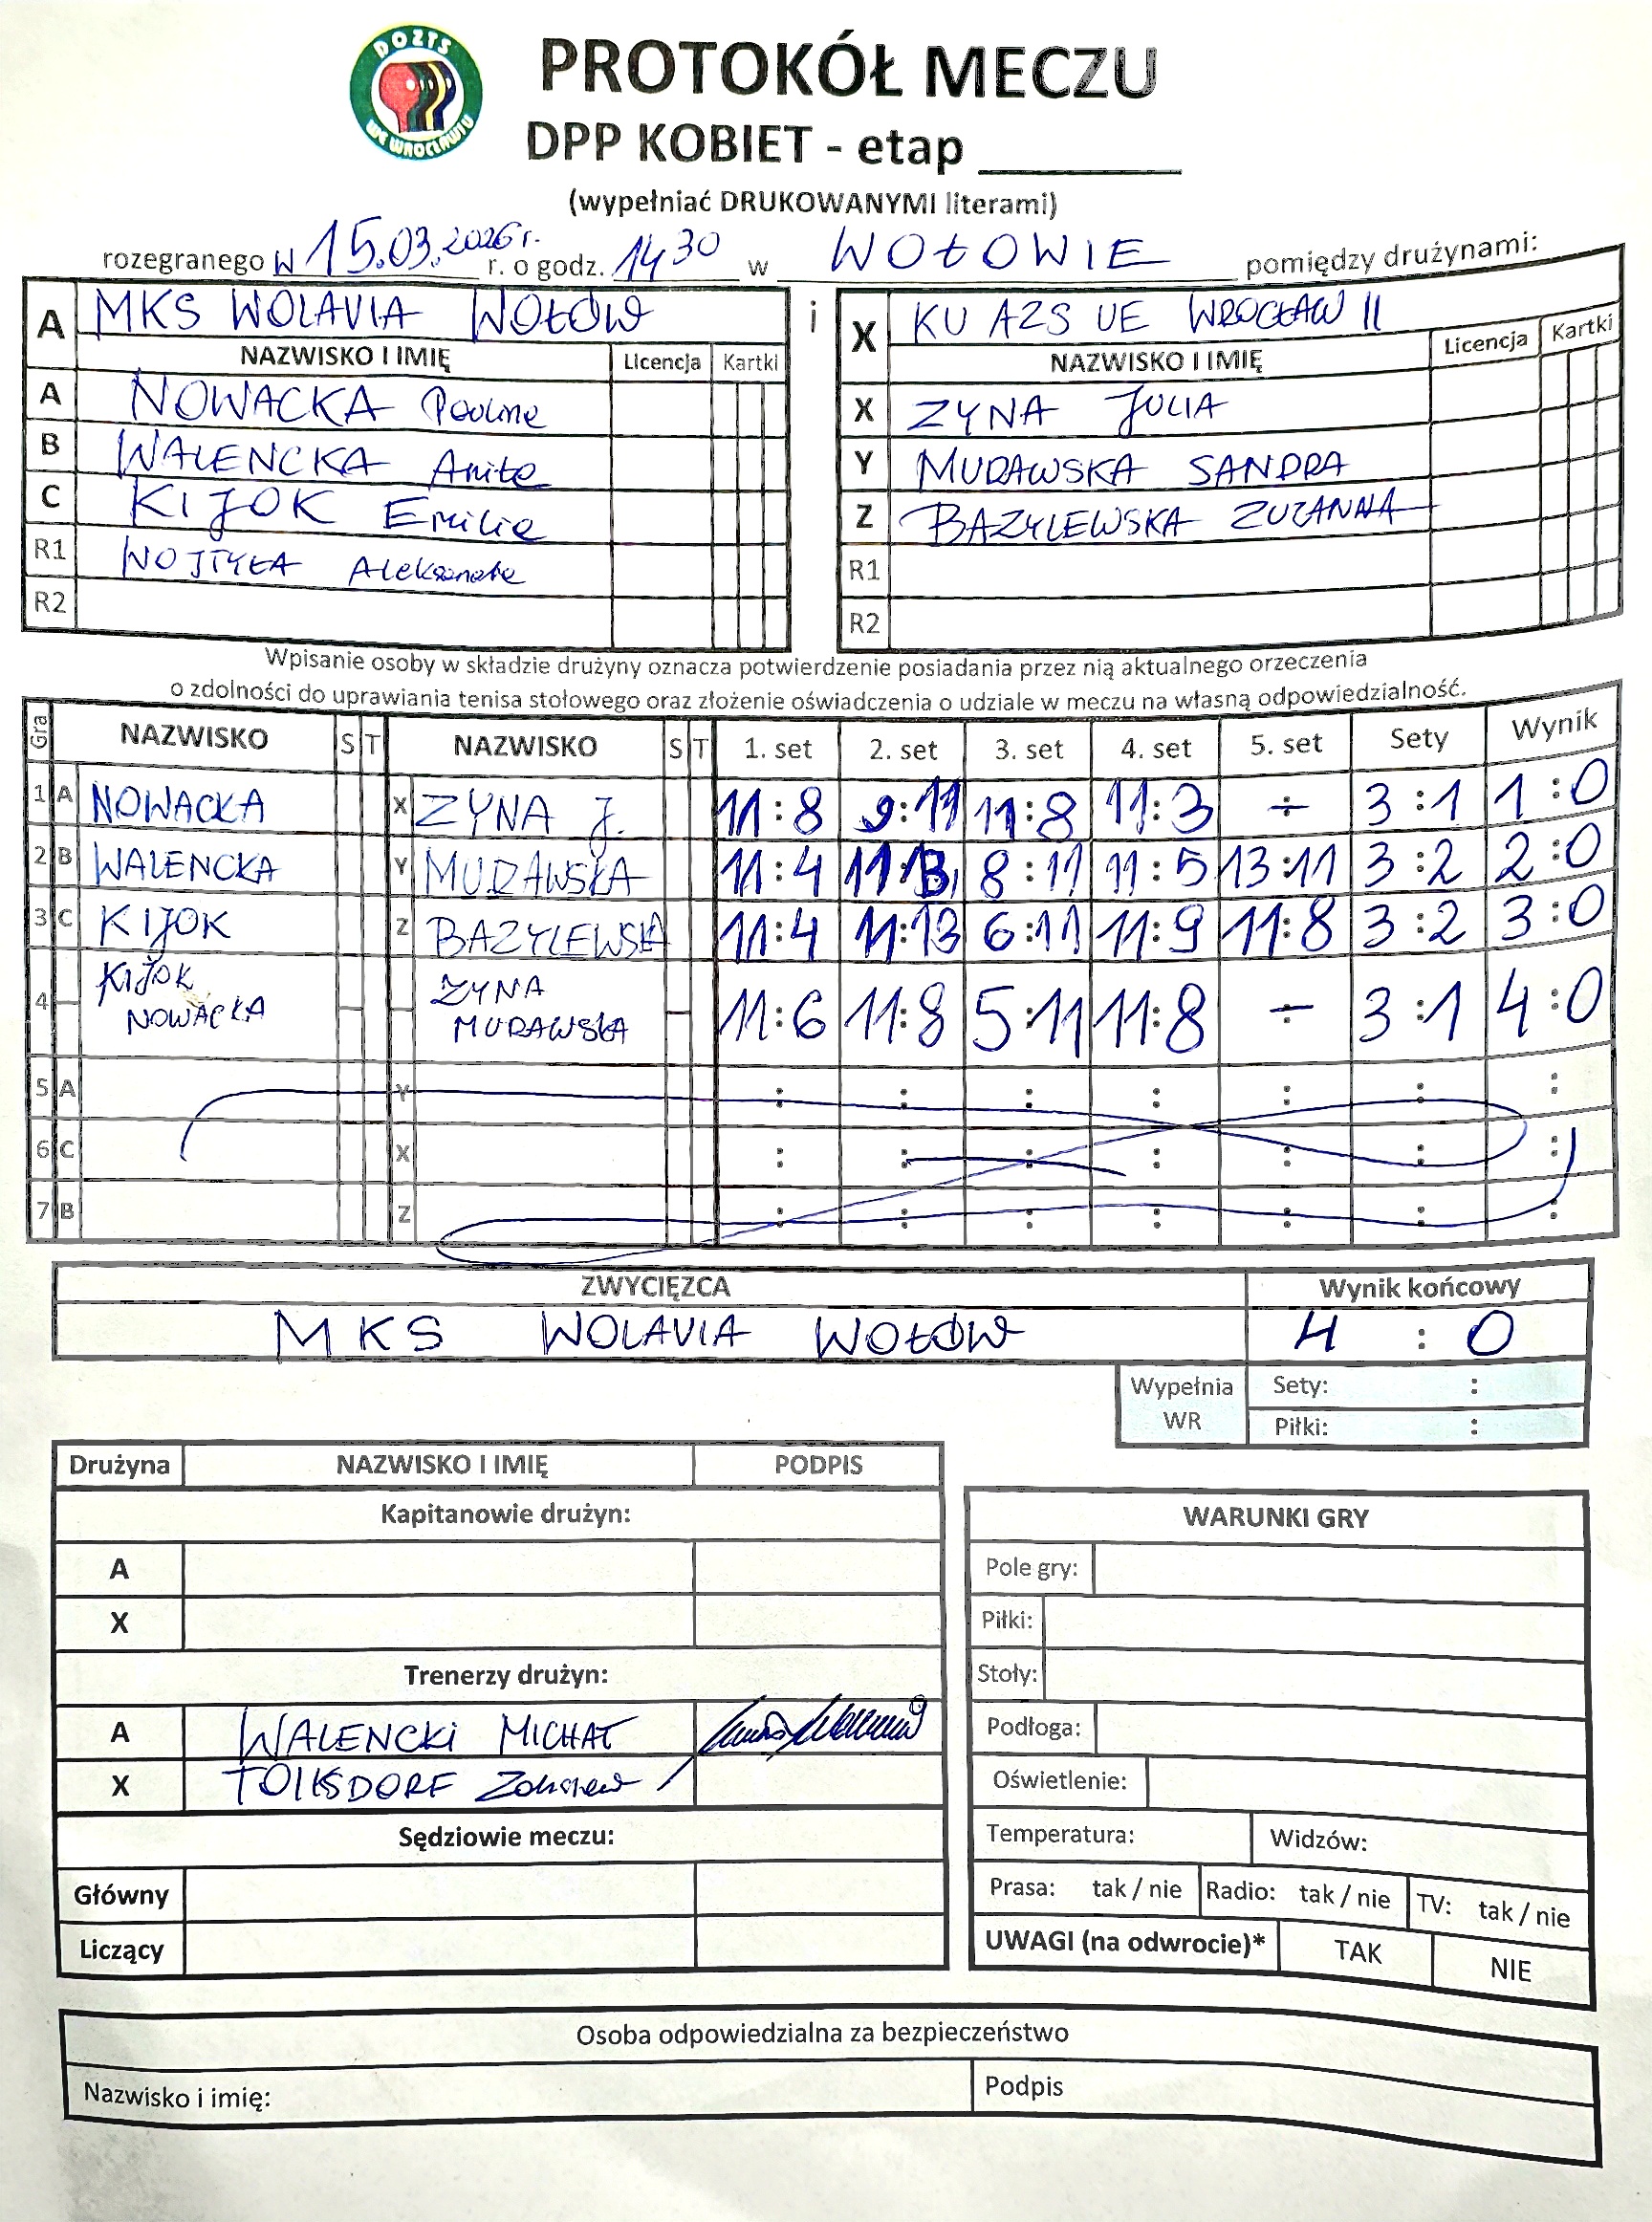 DOZTS
WE WROCŁAWIU
PROTOKÓŁ MECZU
DPP KOBIET - etap
(wypełniać DRUKOWANYMI literami)
rozegranego W 15.03.2026 r. r. o godz. 14 30 w WOŁOWIE pomiędzy drużynami:
A MKS WOLAVIA WOŁÓW i X KU AZS UE WROCŁAW II
NAZWISKO I IMIĘ Licencja Kartki NAZWISKO I IMIĘ Licencja Kartki
A NOWACKA Paulina X ZYNA JULIA
B WALENCKA Anita Y MURAWSKA SANDRA
C KIJOK Emilia Z BAZYLEWSKA ZUZANNA
R1 WOJTYŁA Aleksandra R1
R2 R2
Wpisanie osoby w składzie drużyny oznacza potwierdzenie posiadania przez nią aktualnego orzeczenia
o zdolności do uprawiania tenisa stołowego oraz złożenie oświadczenia o udziale w meczu na własną odpowiedzialność.
Gra NAZWISKO S T NAZWISKO S T 1. set 2. set 3. set 4. set 5. set Sety Wynik
1 A NOWACKA X ZYNA J. 11:8 9:11 11:8 11:3 ÷ 3:1 1:0
2 B WALENCKA Y MURAWSKA 11:4 11:13 8:11 11:5 13:11 3:2 2:0
3 C KIJOK Z BAZYLEWSKA 11:4 11:13 6:11 11:9 11:8 3:2 3:0
4 KIJOK NOWACKA ZYNA MURAWSKA 11:6 11:8 5:11 11:8 - 3:1 4:0
5 A Y : : : : : : :
6 C X : : : : : : :
7 B Z : : : : : : :
ZWYCIĘZCA Wynik końcowy
MKS WOLAVIA WOŁÓW 4 : 0
Wypełnia WR Sety: :
Piłki: :
Drużyna NAZWISKO I IMIĘ PODPIS
Kapitanowie drużyn:
A
X
Trenerzy drużyn:
A WALENCKI MICHAŁ
X TOLKSDORF
Sędziowie meczu:
Główny
Liczący
WARUNKI GRY
Pole gry:
Piłki:
Stoły:
Podłoga:
Oświetlenie:
Temperatura: Widzów:
Prasa: tak / nie Radio: tak / nie TV: tak / nie
UWAGI (na odwrocie)* TAK NIE
Osoba odpowiedzialna za bezpieczeństwo
Nazwisko i imię: Podpis